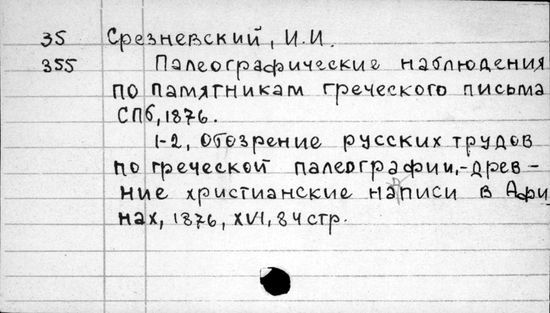 35 Срезневский, И.И.
355 Палеографические наблюдения
по памятникам греческого письма
СПб, 1876.
1-2, Обозрение русских трудов
по греческой палеографии,-древ-
ние христианские надписи в Афи
нах, 1876, XVI, 84 стр.